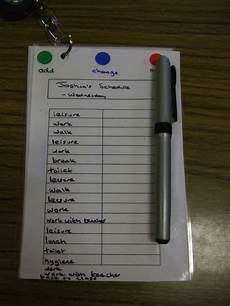 add change
Joshua's Schedule
- Wednesday
leisure
work
walk
leisure
work
break
toilet
leisure
walk
leisure
work
work with teacher
leisure
lunch
toilet
Hygiene
work
work with teacher
back to class